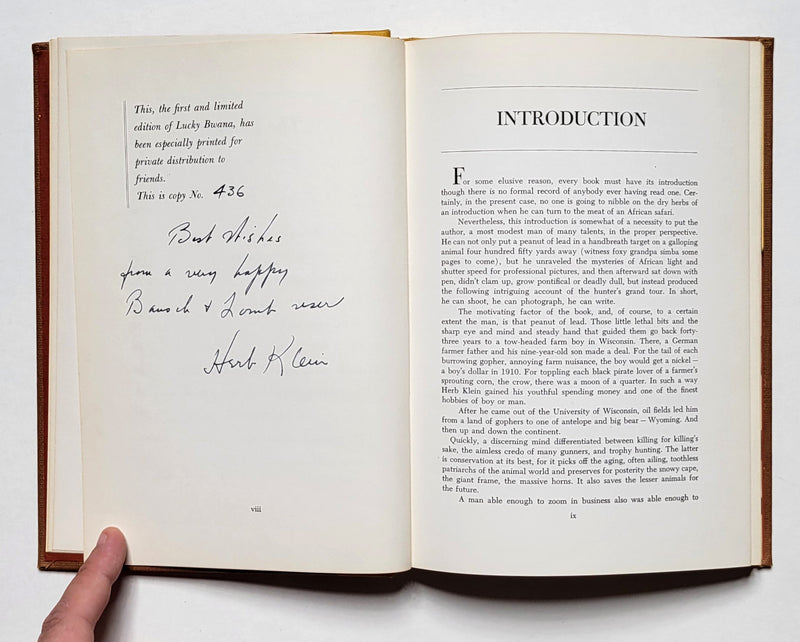 This, the first and limited
edition of Lucky Bwana, has
been especially printed for
private distribution to
friends.
This is copy No. 436
Best Wishes
from a very happy
Bausch & Lomb user
Herb Klein
viii
INTRODUCTION
For some elusive reason, every book must have its introduction
though there is no formal record of anybody ever having read one. Cer-
tainly, in the present case, no one is going to nibble on the dry herbs of
an introduction when he can turn to the meat of an African safari.
Nevertheless, this introduction is somewhat of a necessity to put the
author, a most modest man of many talents, in the proper perspective.
He can not only put a peanut of lead in a handbreath target on a galloping
animal four hundred fifty yards away (witness foxy grandpa simba some
pages to come), but he unraveled the mysteries of African light and
shutter speed for professional pictures, and then afterward sat down with
pen, didn't clam up, grow pontifical or deadly dull, but instead produced
the following intriguing account of the hunter's grand tour. In short,
he can shoot, he can photograph, he can write.
The motivating factor of the book, and, of course, to a certain
extent the man, is that peanut of lead. Those little lethal bits and the
sharp eye and mind and steady hand that guided them go back forty-
three years to a tow-headed farm boy in Wisconsin. There, a German
farmer father and his nine-year-old son made a deal. For the tail of each
burrowing gopher, annoying farm nuisance, the boy would get a nickel –
a boy's dollar in 1910. For toppling each black pirate lover of a farmer's
sprouting corn, the crow, there was a moon of a quarter. In such a way
Herb Klein gained his youthful spending money and one of the finest
hobbies of boy or man.
After he came out of the University of Wisconsin, oil fields led him
from a land of gophers to one of antelope and big bear – Wyoming. And
then up and down the continent.
Quickly, a discerning mind differentiated between killing for killing's
sake, the aimless credo of many gunners, and trophy hunting. The latter
is conservation at its best, for it picks off the aging, often ailing, toothless
patriarchs of the animal world and preserves for posterity the snowy cape,
the giant frame, the massive horns. It also saves the lesser animals for
the future.
A man able enough to zoom in business also was able enough to
ix